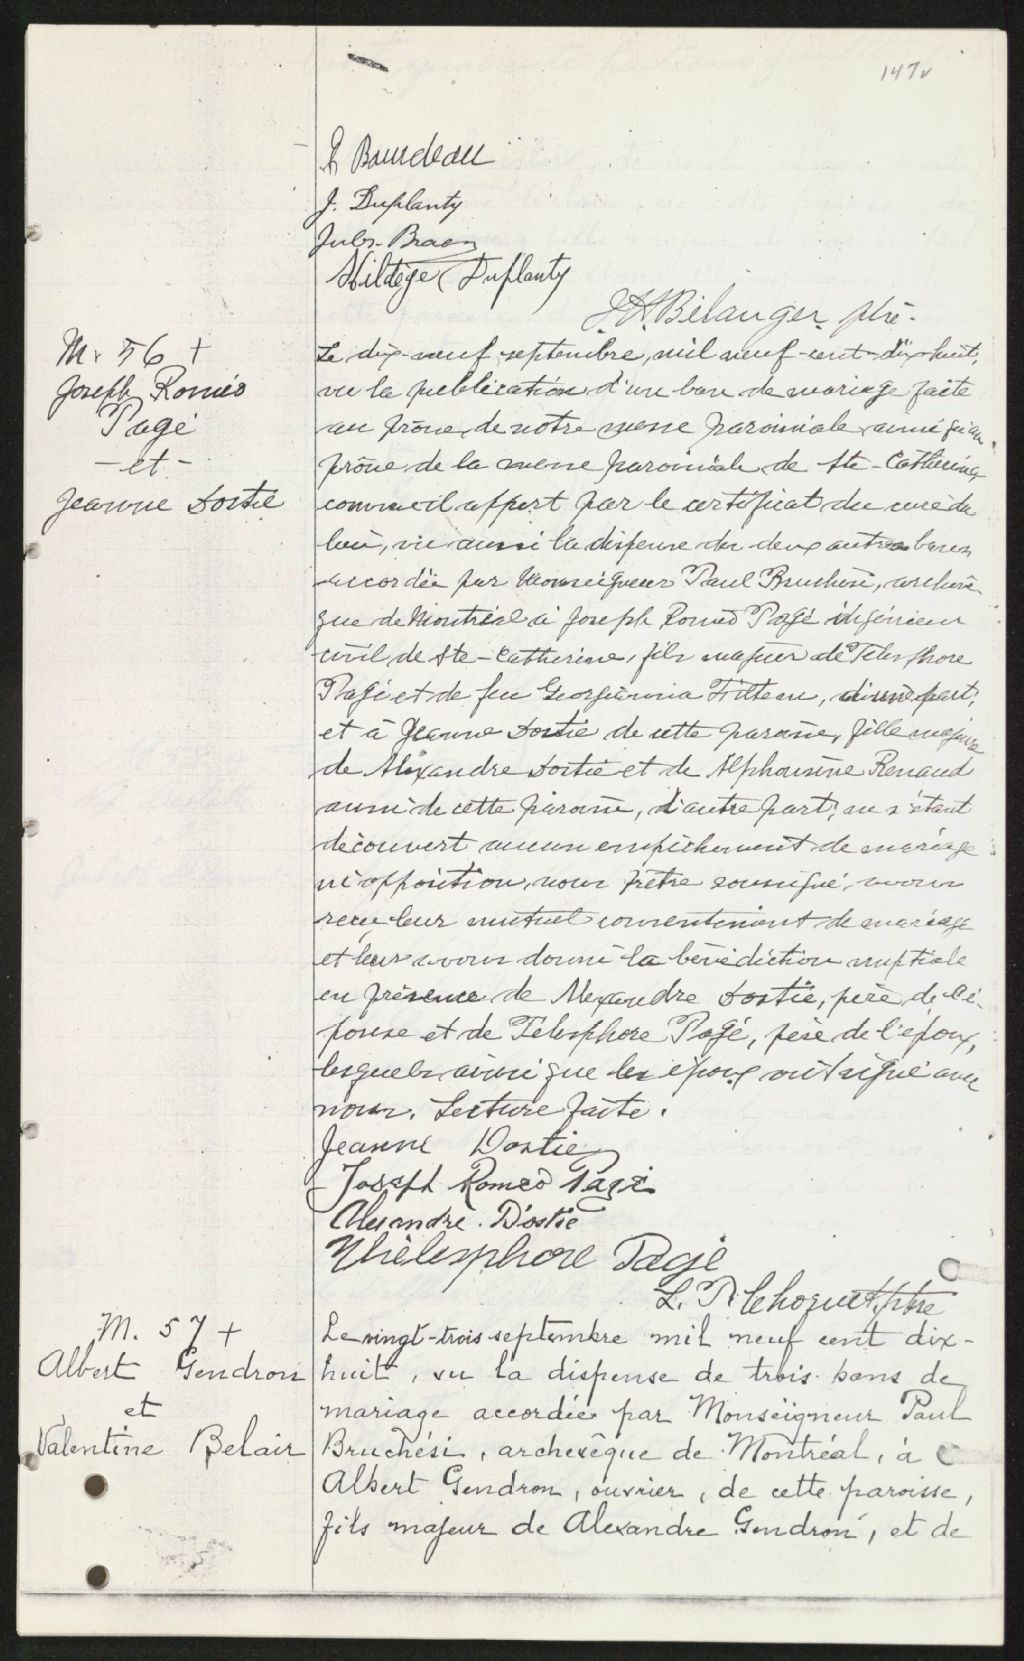 147v
Bourdeau
J. Duplanty
Jules
Hildège Duplanty
J. A. Bélanger ptre.
M. 56 +
Joseph Roméo
Pagé
- et -
Jeanne Dostie
Le dix-neuf septembre, mil neuf cent dix-huit,
vu la publication d'un ban de mariage faite
au prône de notre messe paroissiale ainsi qu'au
prône de la messe paroissiale de Ste-Catherine
comme il appert par le certificat du curé du
lieu, vu aussi la dispense des deux autres bans
accordée par Monseigneur Paul Bruchési, archevê-
que de Montréal à Joseph Roméo Pagé ingénieur
civil de Ste-Catherine, fils majeur de Télesphore
Pagé et de feu Georgianna Filteau, d'une part,
et à Jeanne Dostie de cette paroisse, fille majeure
de Alexandre Dostie et de Alphonsine Renaud
aussi de cette paroisse, d'autre part; ne s'étant
découvert aucun empêchement de mariage
ni opposition, nous prêtre soussigné, avons
reçu leur mutuel consentement de mariage
et leur avons donné la bénédiction nuptiale
en présence de Alexandre Dostie, père de l'é-
pouse et de Télesphore Pagé, père de l'époux,
lesquels ainsi que les époux ont signé avec
nous. Lecture faite.
Jeanne Dostie
Joseph Roméo Pagé
Alexandre Dostie
Thélesphore Pagé
L. P. Choquette ptre
M. 57 +
Albert Gendron
et
Valentine Belair
Le vingt-trois septembre mil neuf cent dix-
huit, vu la dispense de trois bans de
mariage accordée par Monseigneur Paul
Bruchési, archevêque de Montréal, à
Albert Gendron, ouvrier, de cette paroisse,
fils majeur de Alexandre Gendron, et de